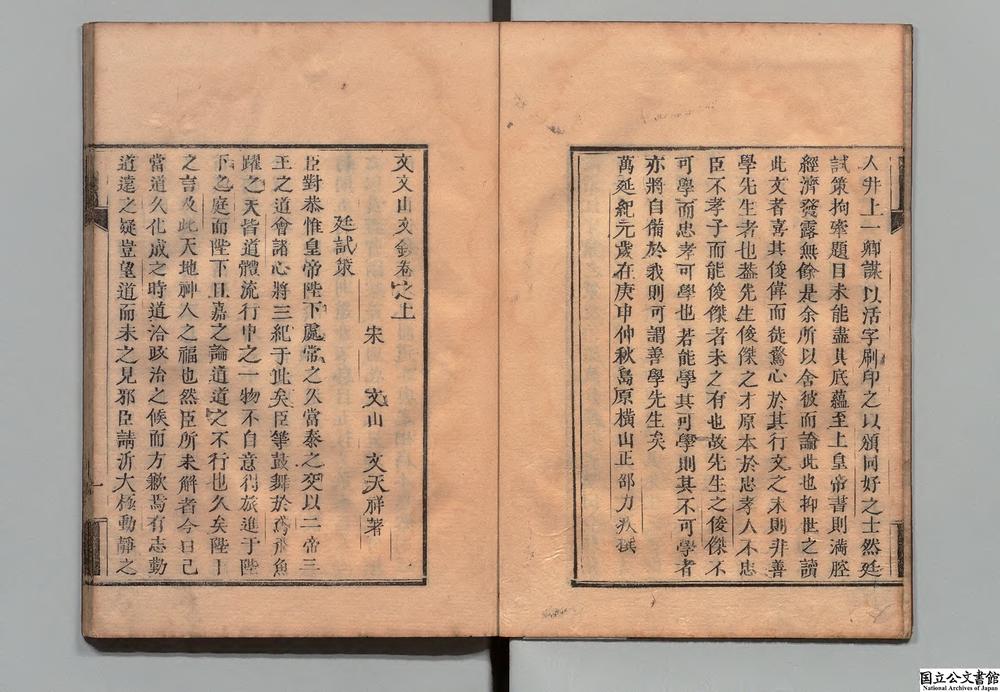 人井上一卿謀以活字刷印之以頒同好之士然廷
試策拘牽題目未能盡其底蘊至上皇帝書則満腔
經濟發露無餘是余所以舍彼而論此也抑世之讀
此文者喜其俊偉而徒驚心於其行文之末則非善
學先生者也葢先生俊傑之才原本於忠孝人不忠
臣不孝子而能俊傑者未之有也故先生之俊傑不
可學而忠孝可學也若能學其可學則其不可學者
亦將自備於我則可謂善學先生矣
萬延紀元歲在庚申仲秋島原横山正邰力疾撰
文文山文鈔卷之上
宋 文山 文天祥著
廷試策
臣對恭惟皇帝陛下處常之久當泰之交以二帝三
王之道會諸心將三紀于此矣臣等鼓舞於鳶飛魚
躍之天皆道體流行中之一物不自意得旅進于陛
下之庭而陛下且嘉之論道道之不行也久矣陛下
之言及此天地神人之福也然臣所未解者今日已
當道久化成之時道洽政治之候而方歉焉有志勤
道遠之疑豈望道而未之見邪臣請泝大極動靜之
一
国立公文書館
National Archives of Japan